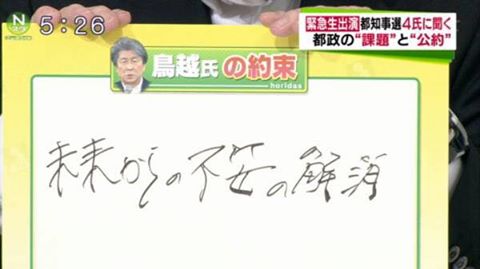 N
5:26
緊急生出演 都知事選4氏に聞く
都政の“課題”と“公約”
鳥越氏の約束
horidas
未来からの不安の解消